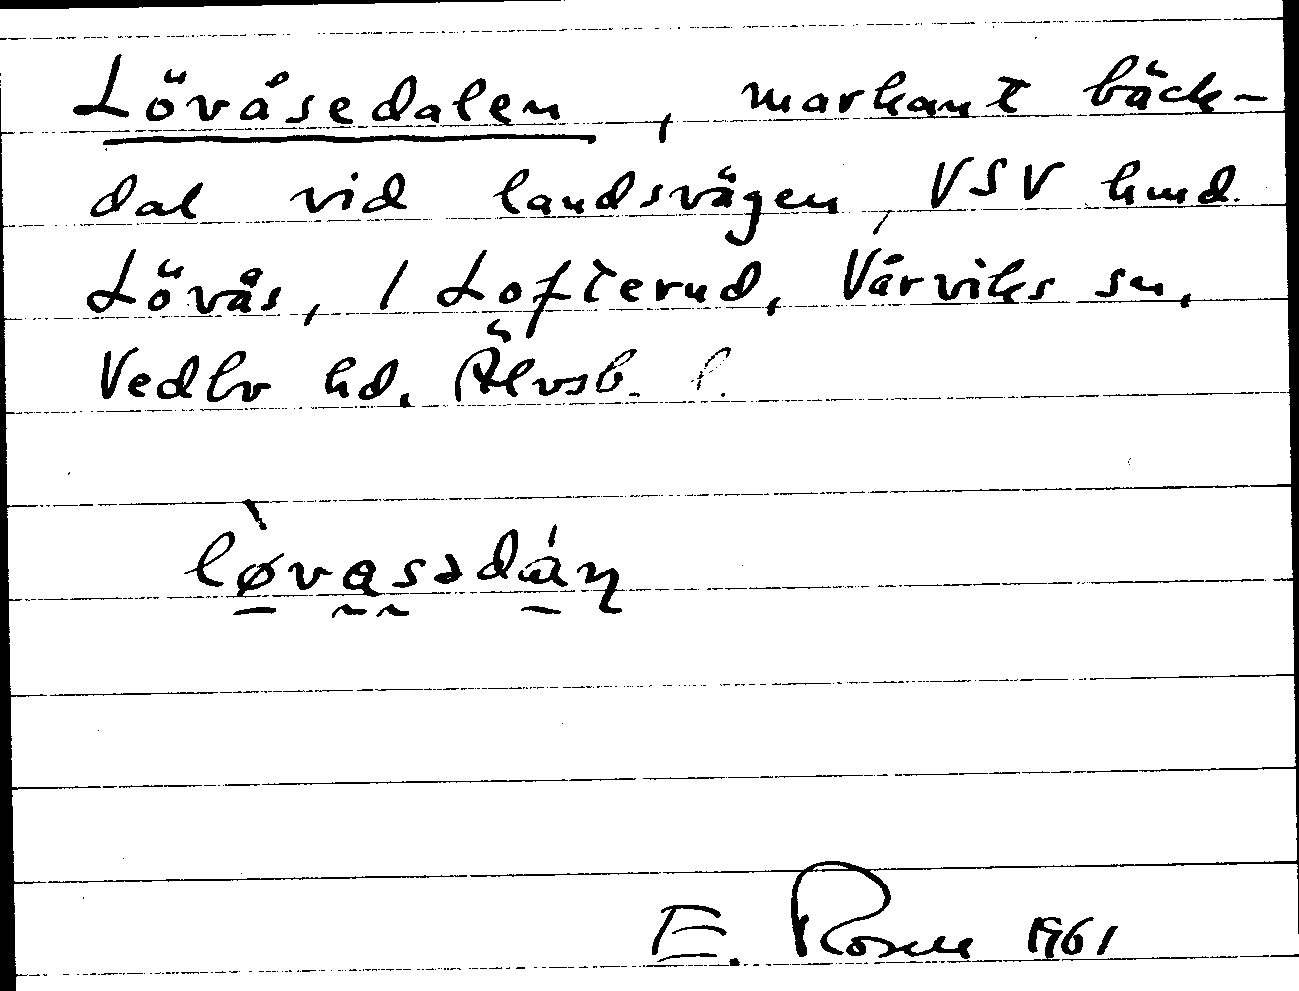 Lövåsedalen, markant bäck-
dal vid landsvägen, VSV hmd.
Lövås, 1 Lofterud, Vårviks sn,
Vedbo hd. Älvsb. l.
lø̀vasədán
E. Rosell 1961